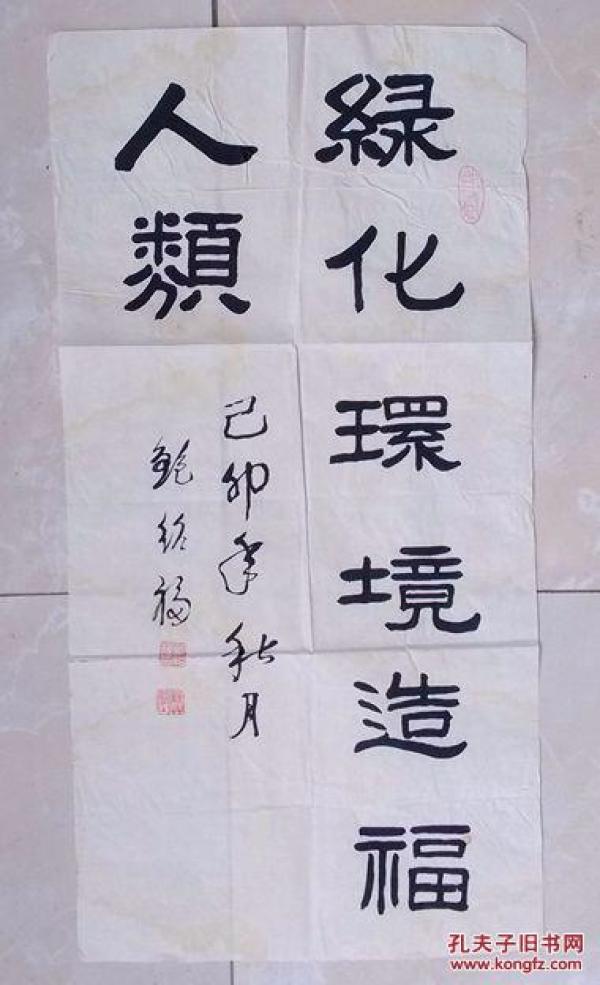 緑化環境造福
人類
己卯年秋月
鲍绍福
孔夫子旧书网
www.kongfz.com